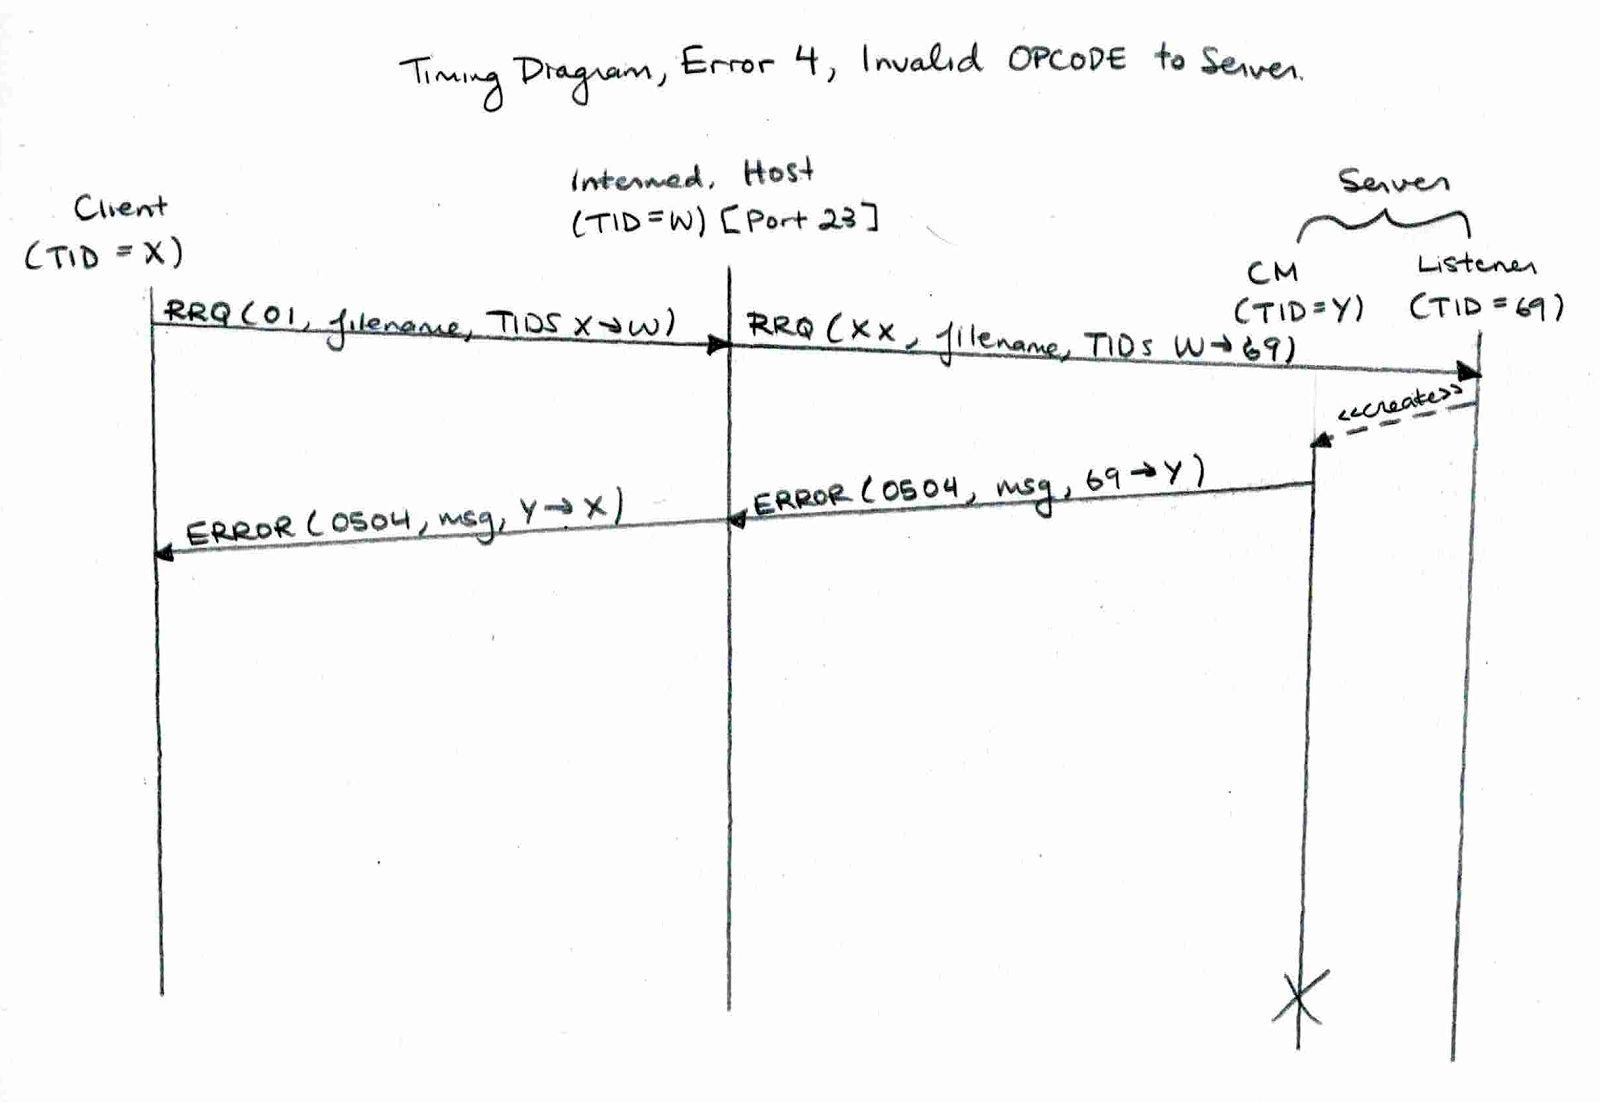 Timing Diagram, Error 4, Invalid OPCODE to Server.
Intermed. Host
(TID=W) [Port 23]
Client
(TID = X)
Server
CM
(TID=Y)
Listener
(TID=69)
RRQ (01, filename, TIDS X→W)
RRQ (XX, filename, TIDs W→69)
<<create>>
ERROR (0504, msg, 69→Y)
ERROR (0504, msg, Y→X)